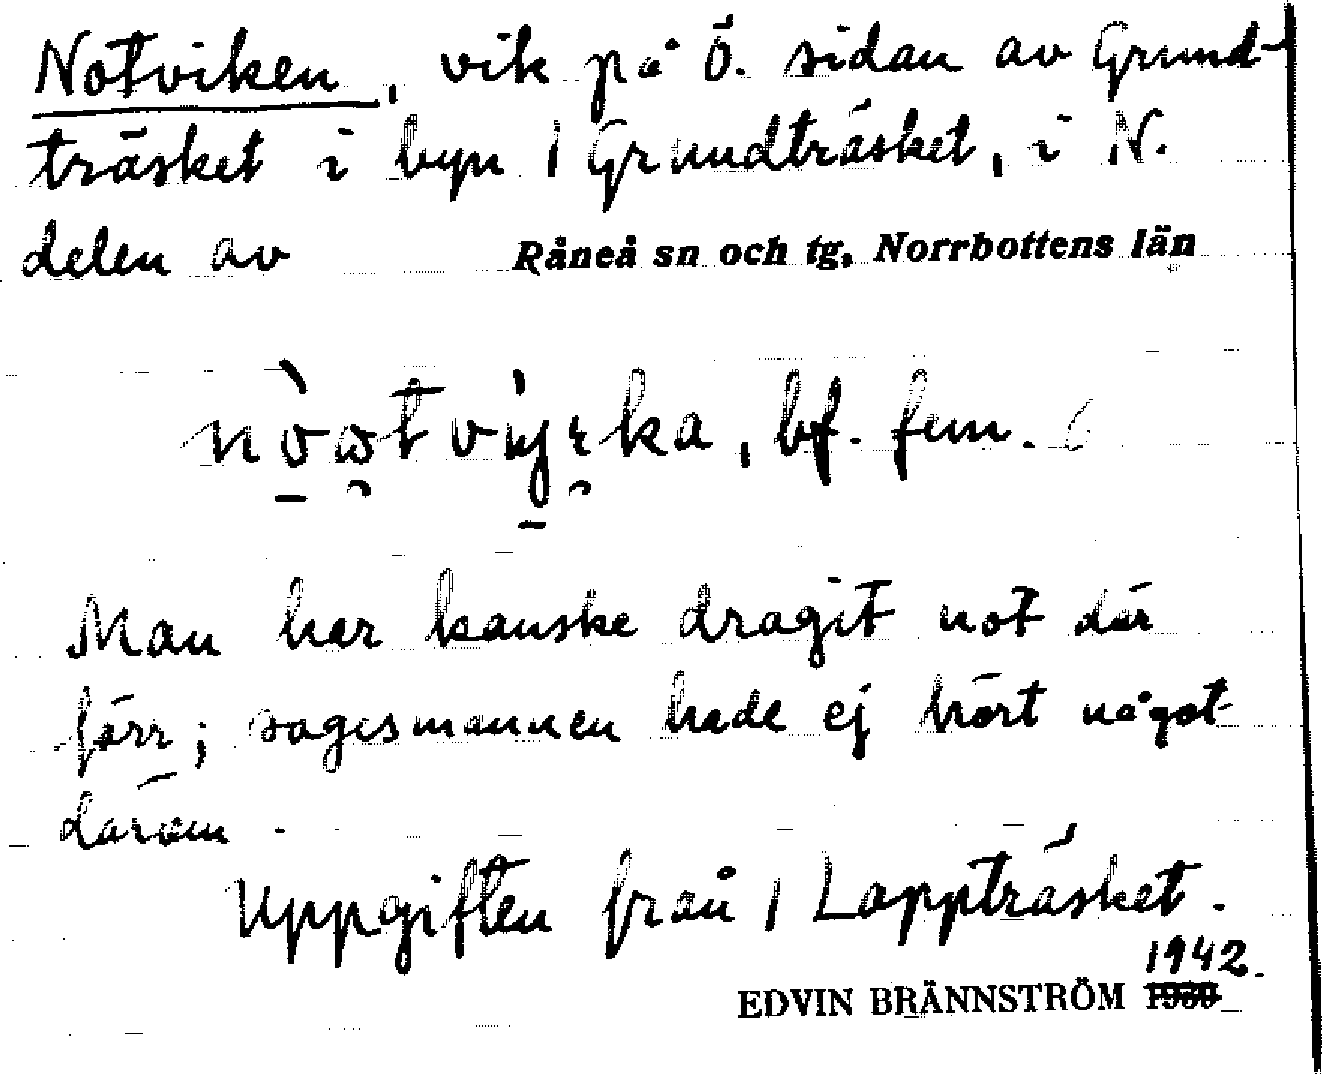 Notviken, vik på ö. sidan av Grund-
träsket i byn / Grundträsket, i N.
delen av Råneå sn och tg, Norrbottens län
bf. fem.
Man har kanske dragit not där
förr; sagesmannen hade ej hört något
därom.
Uppgiften från / Lappträsket.
1942.
EDVIN BRÄNNSTRÖM 1930